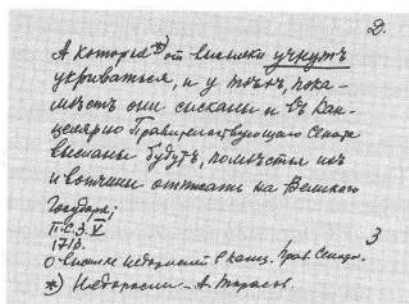 Д.
А которые *) от высылки учнутъ
укрываться, и у тѣхъ, пока-
мѣстъ они сысканы и въ Кан-
целярию Правительствующаго Сената
высланы будутъ, помѣстья ихъ
и вотчины отписать на Великаго
Государя;
П.С.З. V
171
3
О высылке недорослей в канц. Прав. Сената.
*) Недоросли - А.